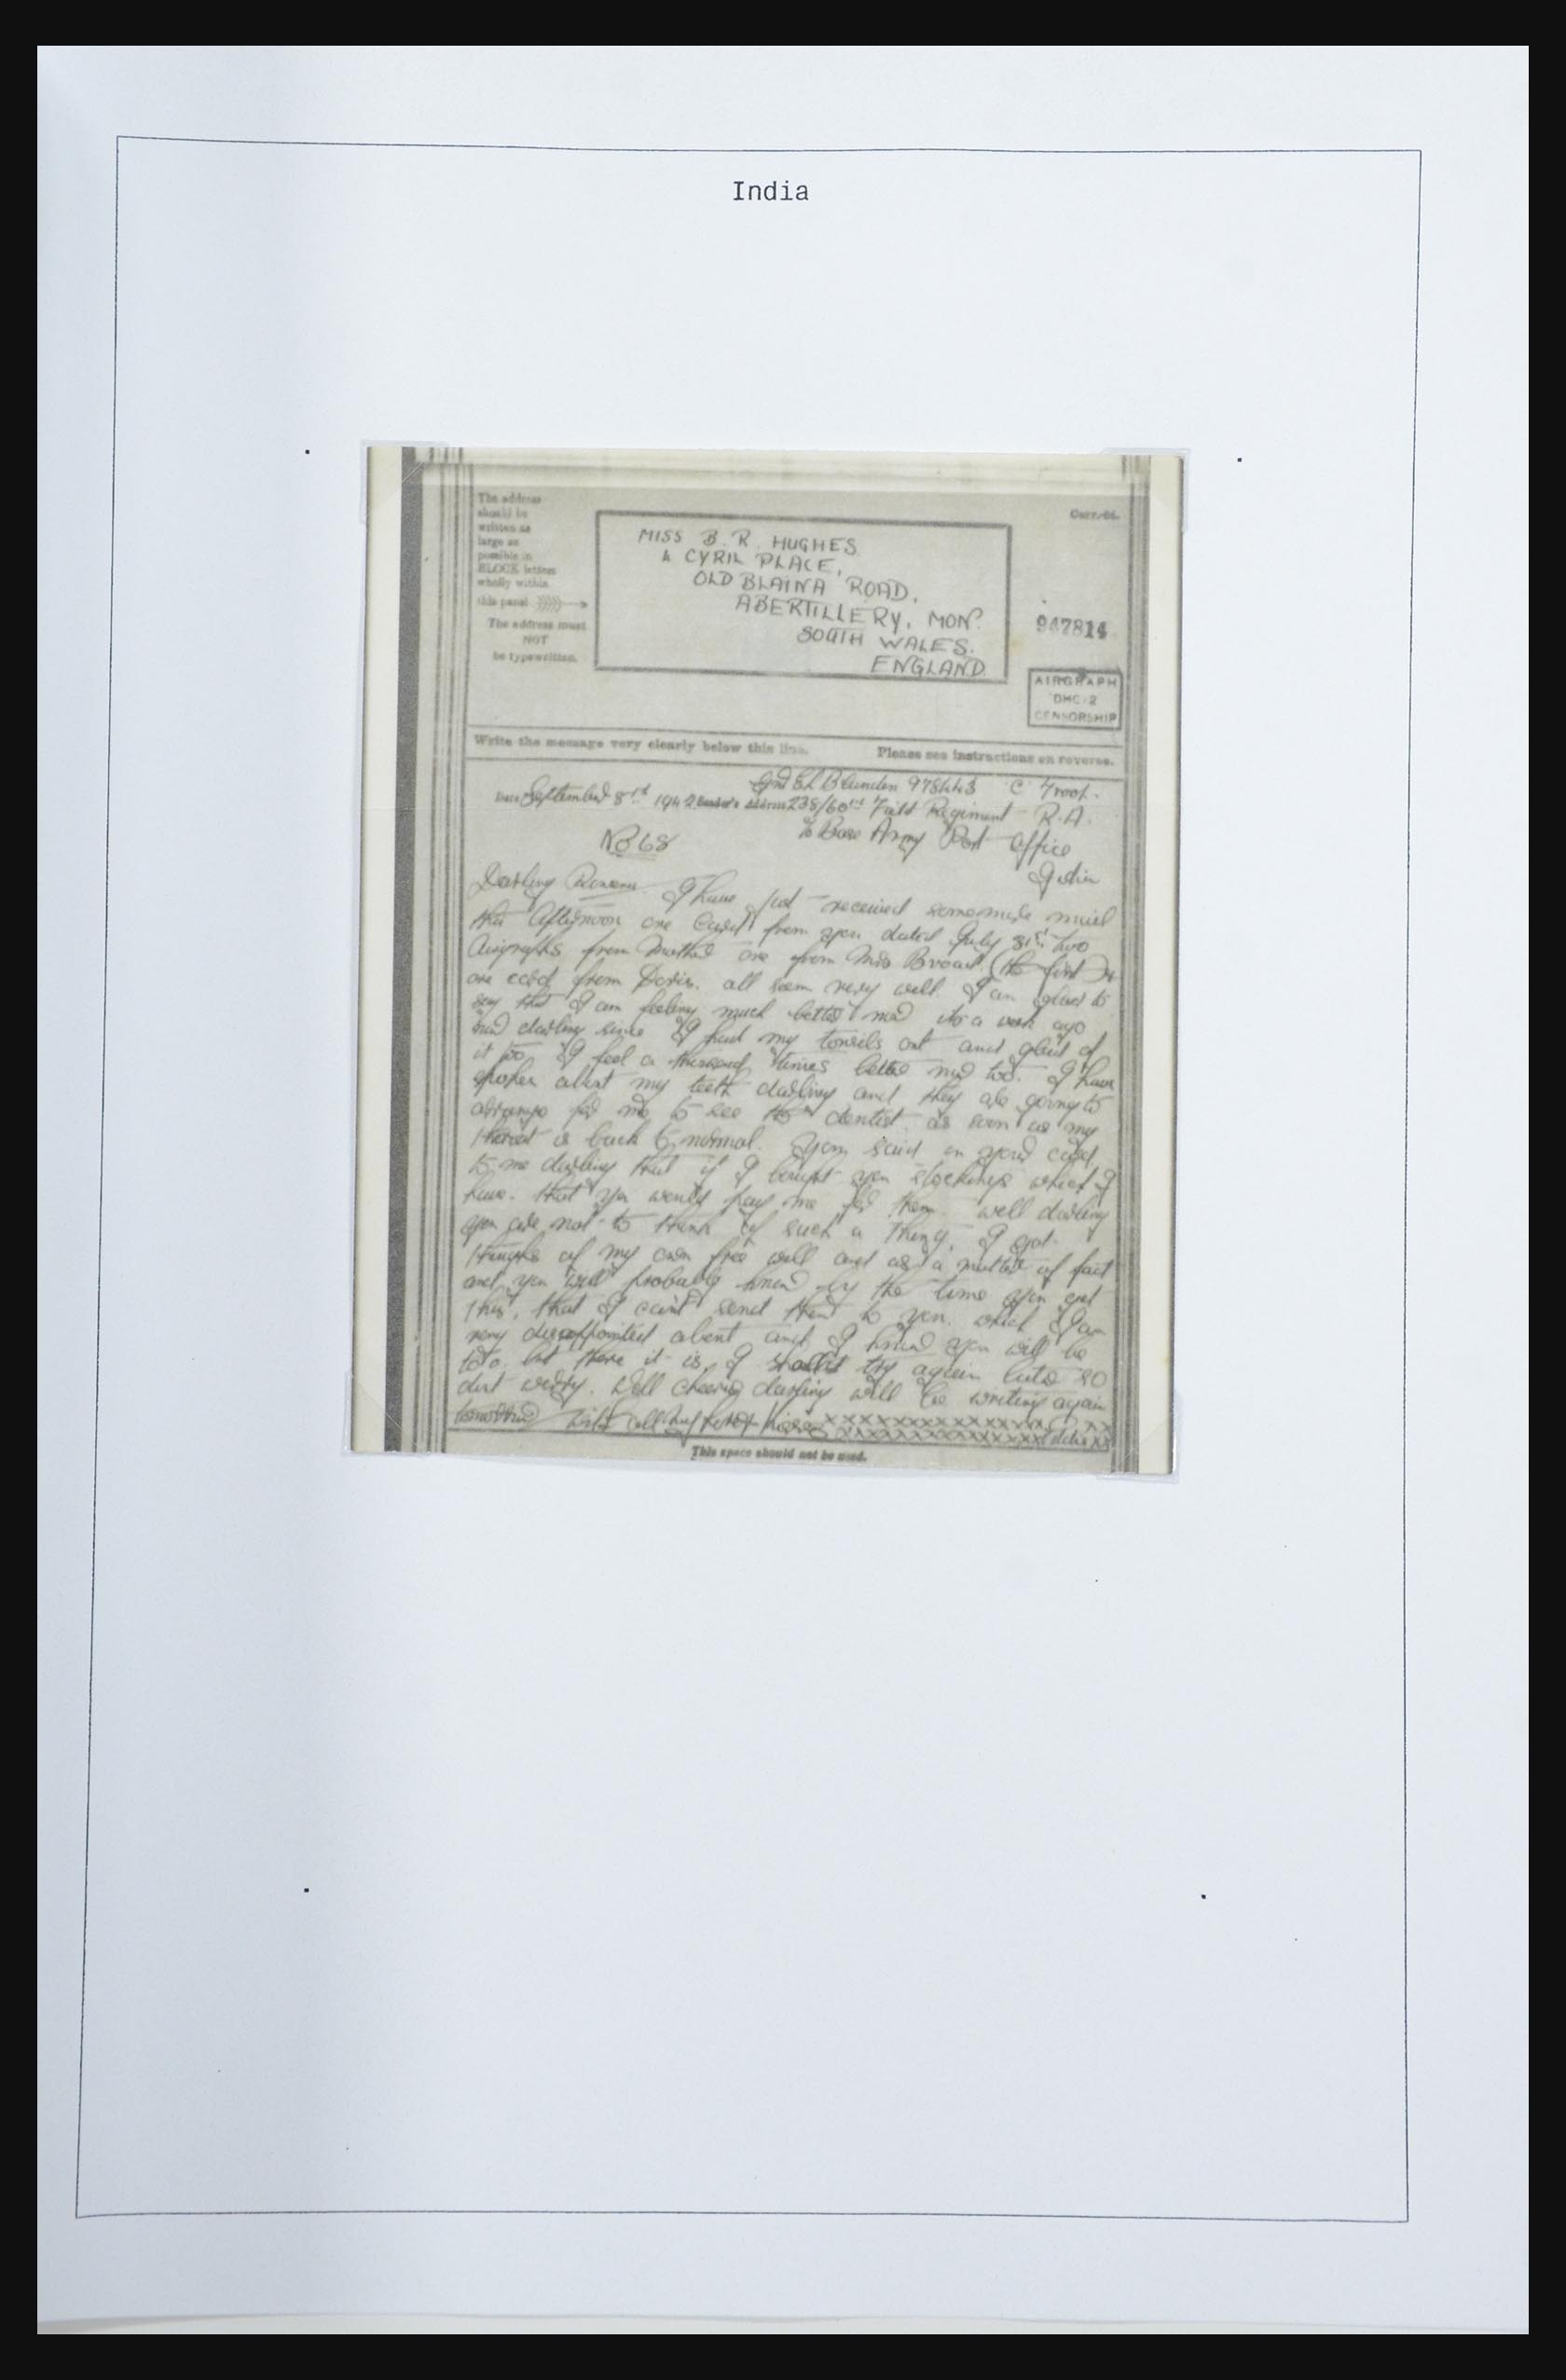 India
The address
should be
written as
large as
possible in
BLOCK letters
wholly within
this panel
The address must
NOT
be typewritten.
MISS B. R. HUGHES
4 CYRIL PLACE,
OLD BLAINA ROAD,
ABERTILLERY, MON.
SOUTH WALES.
ENGLAND
947814
AIRGRAPH
DHC/2
CENSORSHIP
Write the message very clearly below this line.
Please see instructions on reverse.
Blunden C Troop.
Date September 1942 Sender's Address 238/60 Field Regiment R.A.
No 68
c/o Base Army Post Office
India
Darling I have just received some more mail
this afternoon one card from you dated July 31st two
Airgraphs from Mother one from Mrs (the first)
one card from Doris. all seem very well. I am glad to
say that I am feeling much better now its a week ago
now darling since I had my tonsils out and glad of
it too. I feel a thousand times better now too. I have
spoken about my teeth darling and they are going to
arrange for me to see the dentist as soon as my
throat is back to normal. You said on your card
to me darling that if I bought you stockings which I
have. that you would pay me for them. well darling
you are not to think of such a thing. I got
of my own free will and as a matter of fact
and you will probably know by the time you get
this, that I can't send them to you. which I am
very disappointed about and I know you will be
too. but there it is, I shall try again later so
dont worry. Well cheerio darling will be writing again
tomorrow with all my love & kisses xxxxxxxxxxxxxxxx
This space should not be used.